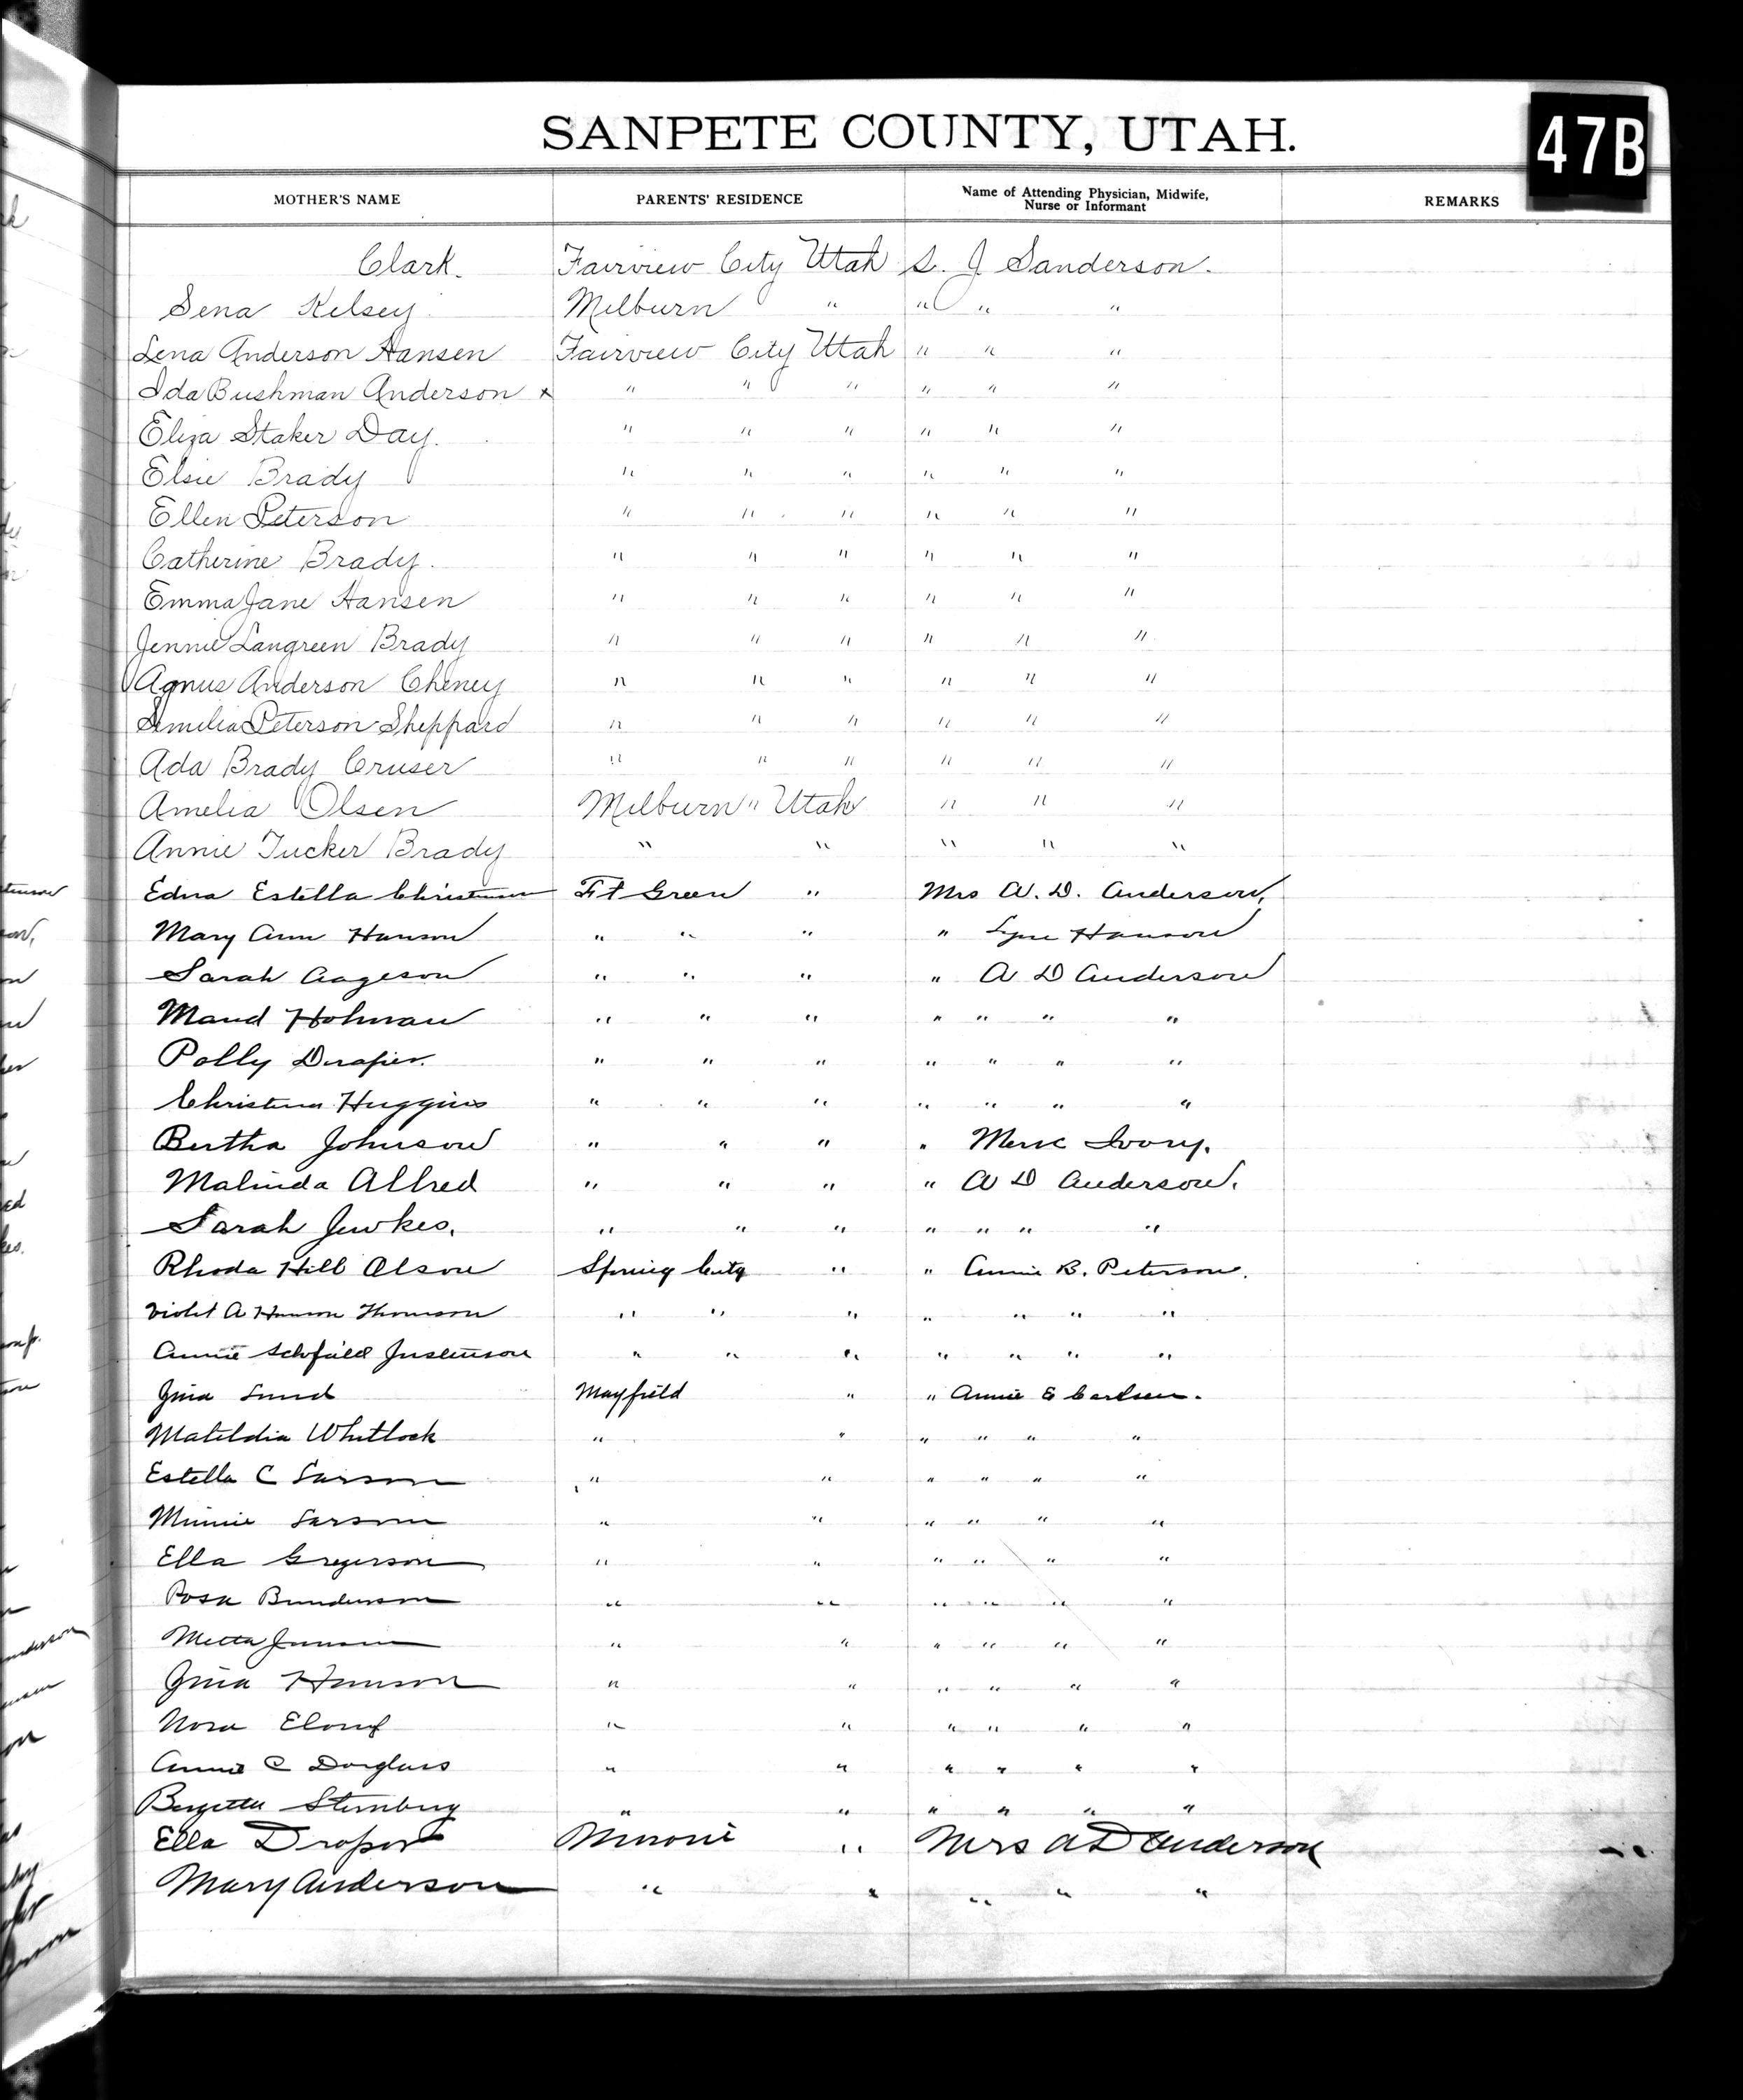 SANPETE COUNTY, UTAH.
47B
MOTHER'S NAME PARENTS' RESIDENCE Name of Attending Physician, Midwife, Nurse or Informant REMARKS
Clark. Fairview City Utah S. J Sanderson.
Sena Kelsey Milburn " " " "
Lena Anderson Hansen Fairview City Utah " " "
Ida Bushman Anderson x " " " " " "
Eliza Staker Day. " " " " " "
Elsie Brady " " " " " "
Ellen Peterson " " " " " "
Catherine Brady. " " " " " "
Emma Jane Hansen " " " " " "
Jennie Langreen Brady " " " " " "
Agnus Anderson Cheney " " " " " "
Peterson Sheppard " " " " " "
Ada Brady Cruser " " " " " "
Amelia Olsen Milburn " Utah " " "
Annie Tucker Brady " " " " "
Edna Estella Christensen Ft Green " Mrs A. D. Anderson,
Mary Ann Hanson " " " " Hanson
Sarah Aageson " " " " A D Anderson
Maud Holman " " " " " " "
Polly Draper. " " " " " " "
Christena Huggins " " " " " " "
Bertha Johnson " " " " Ivory.
Malinda Allred " " " " A D Anderson.
Sarah Jewkes. " " " " " " "
Rhoda Hill Olson Spring City " " Annie B. Peterson.
Violet A Hanson Thomson " " " " " " "
Annie Schofield Justenson " " " " " " "
Gina Lund Mayfield " " Annie E Carlsen.
Matildia Whitlock " " " " " "
Estella C Larson " " " " " "
Minnie Larson " " " " " "
Ella Gregerson " " " " " "
Rosa Bunderson " " " " " "
Metta Jensen " " " " " "
Gina Hanson " " " " " "
Nora " " " " " "
Annie C Douglass " " " " " "
Sternberg " " " " " "
Ella Draper Moroni " Mrs A D Anderson
Mary Anderson " " " " "